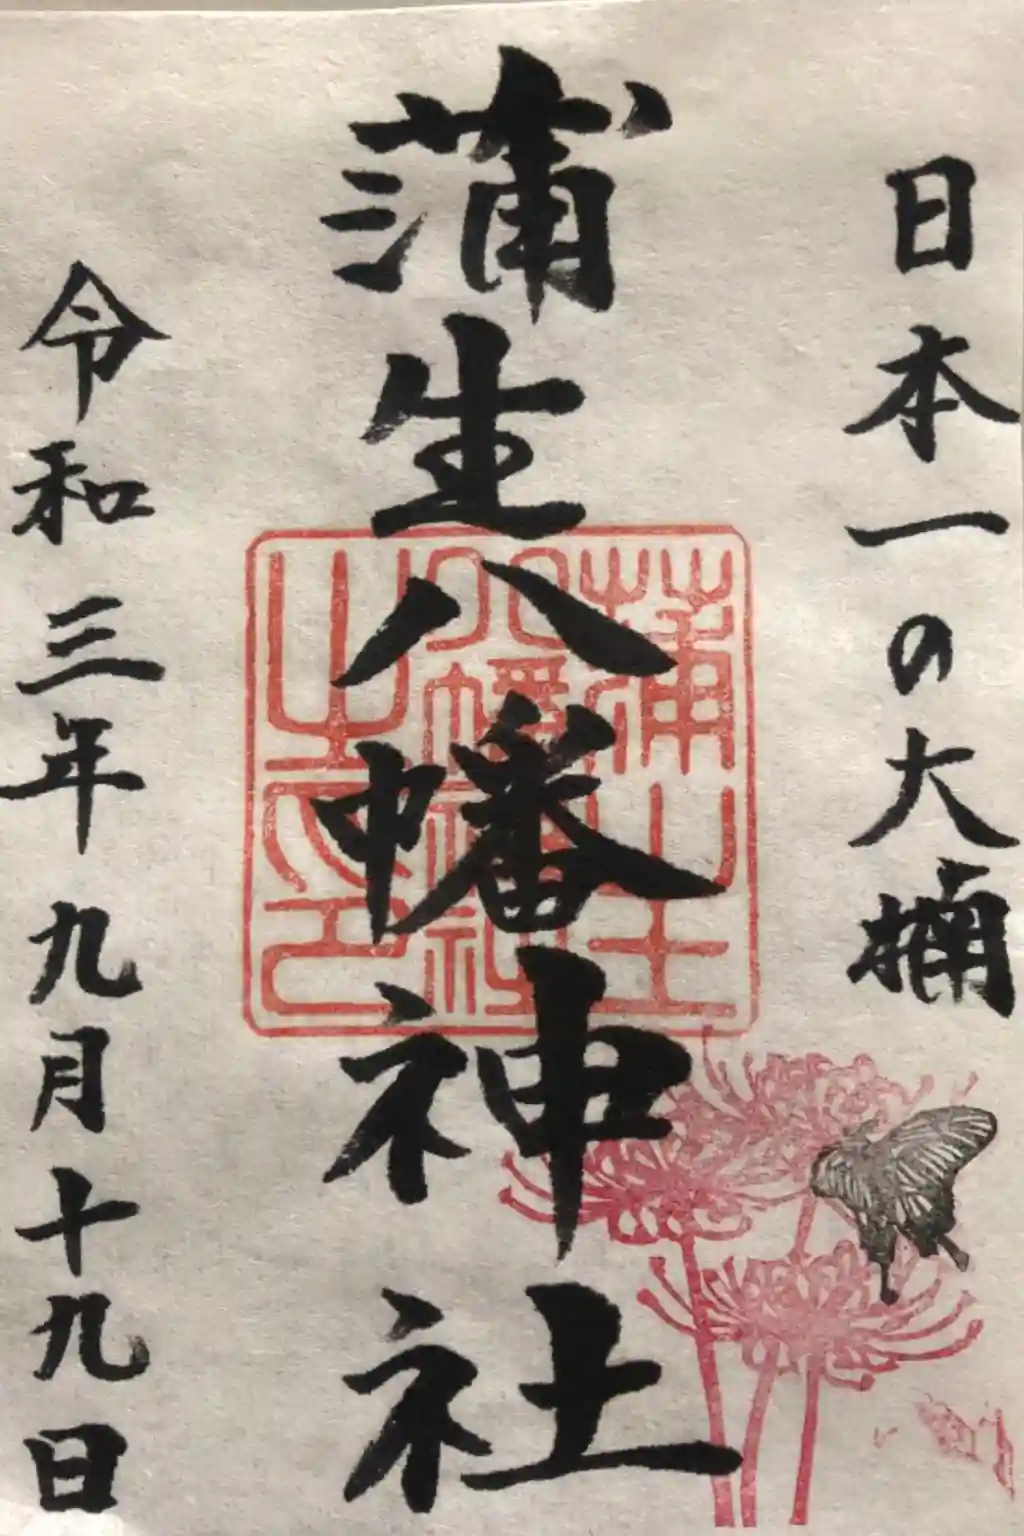 日本一の大楠
蒲生八幡神社
令和三年九月十九日
蒲生
八幡神社
之印